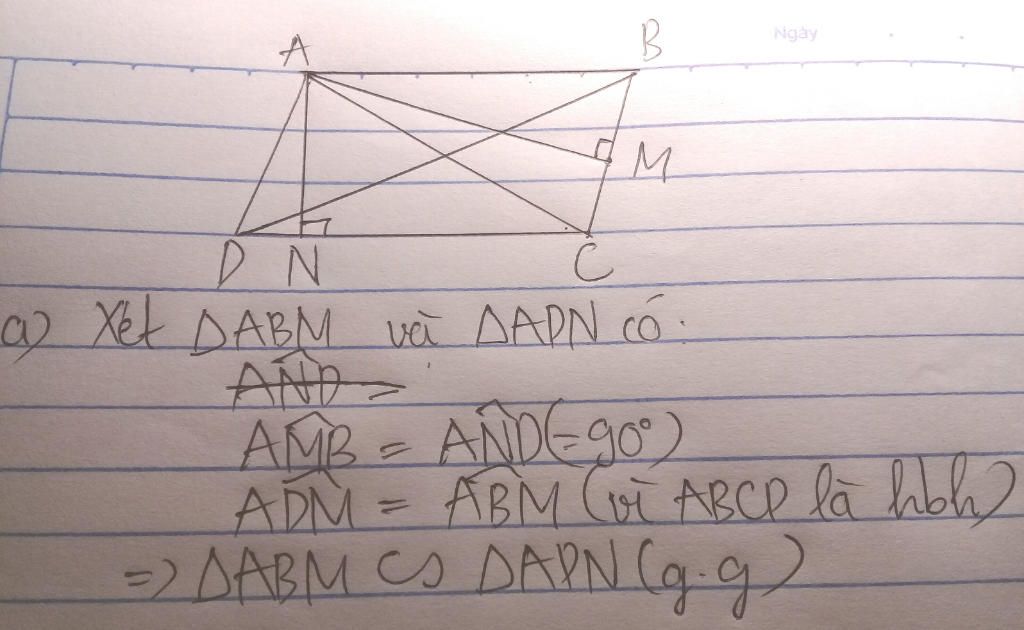 Ngày
A B
M
D N C
a) Xét ΔABM và ΔADN có:
AND̂ =
AM̂B = AN̂D (= 90°)
AD̂M = AB̂M (vì ABCD là hbh)
=> ΔABM ∽ ΔADN (g.g)